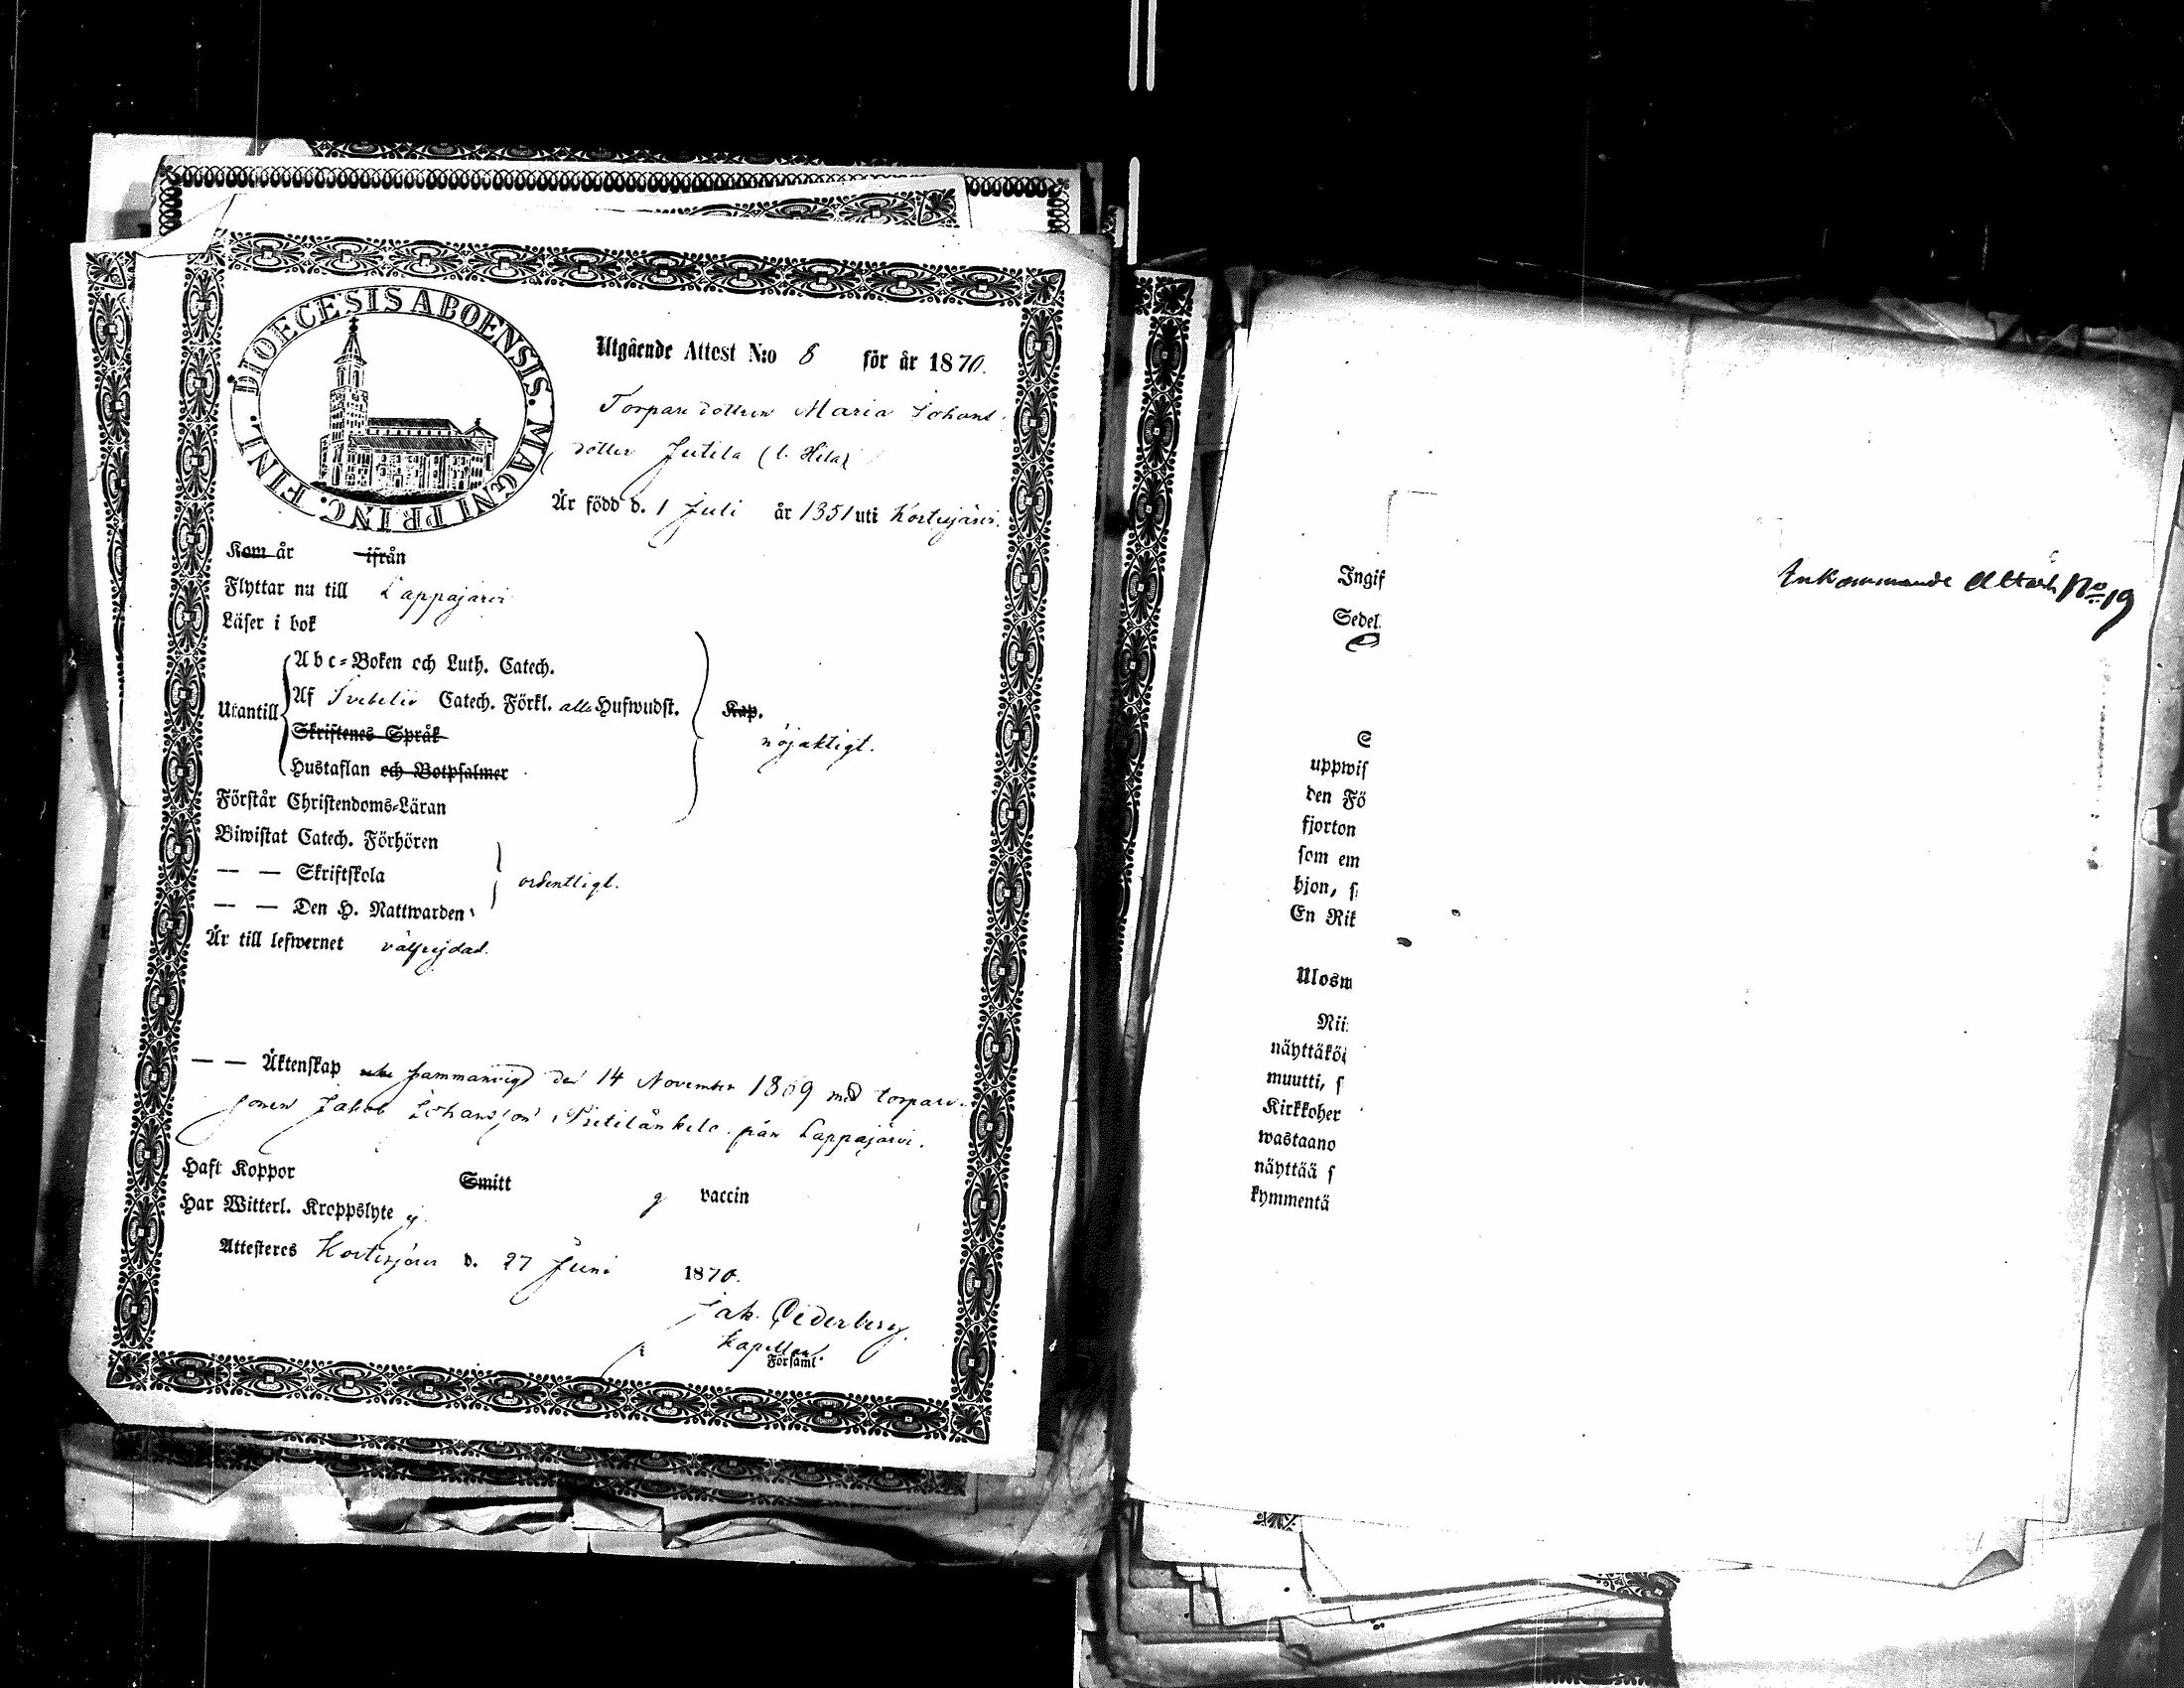 DIOECESIS ABOENSIS. MAGNI PRINC. FINL.
Utgående Attest N:o 8 för år 1870.
Torparedottren Maria Johans
dotter Jutila
Är född d. 1 Juli år 1851 uti Kortesjärvi.
Kom år ifrån
Flyttar nu till Lappajärvi
Läser i bok
Utantill
Abc-Boken och Luth. Catech.
Af Svebelii Catech. Förkl. alla Hufwudst.
Kap.
Skriftenes Språk
nöjaktigt.
Hustaflan och Botpsalmer
Förstår Christendoms-Läran
Biwistat Catech. Förhören
— — Skriftskola
ordentligt.
— — Den H. Nattwarden
Är till lefwernet välfrejdad.
— — Äktenskap sammanvigd den 14 November 1869 med torpare-
sonen Jakob Johansson från Lappajärvi.
Haft Koppor Smitt vaccin
Har Witterl. Kroppslyte ej
Attesteres Kortesjärvi d. 27 Juni 1870.
Jak. Cederberg.
Kapellan.
Församl.
Inkommande Attest No 19
Ingif
Sedel.
uppwis
den Fö
fjorton
som em
hjon, s
En Rik
Ulosm
Nii
näyttäkö
muutti, s
Kirkkoher
wastaano
näyttää s
kymmentä